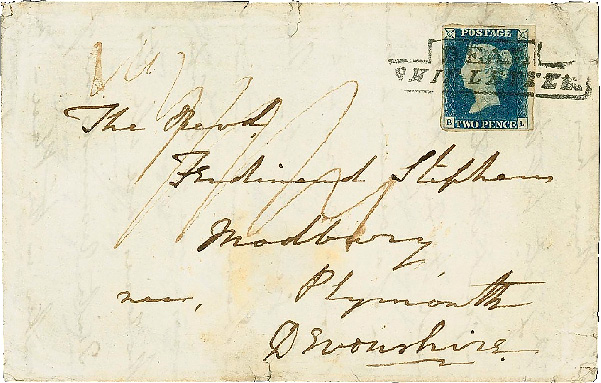 POSTAGE
B TWO PENCE L
SHIP LETTER
The Revd.
Ferdinand Stephens
Modbury
near, Plymouth
Devonshire.